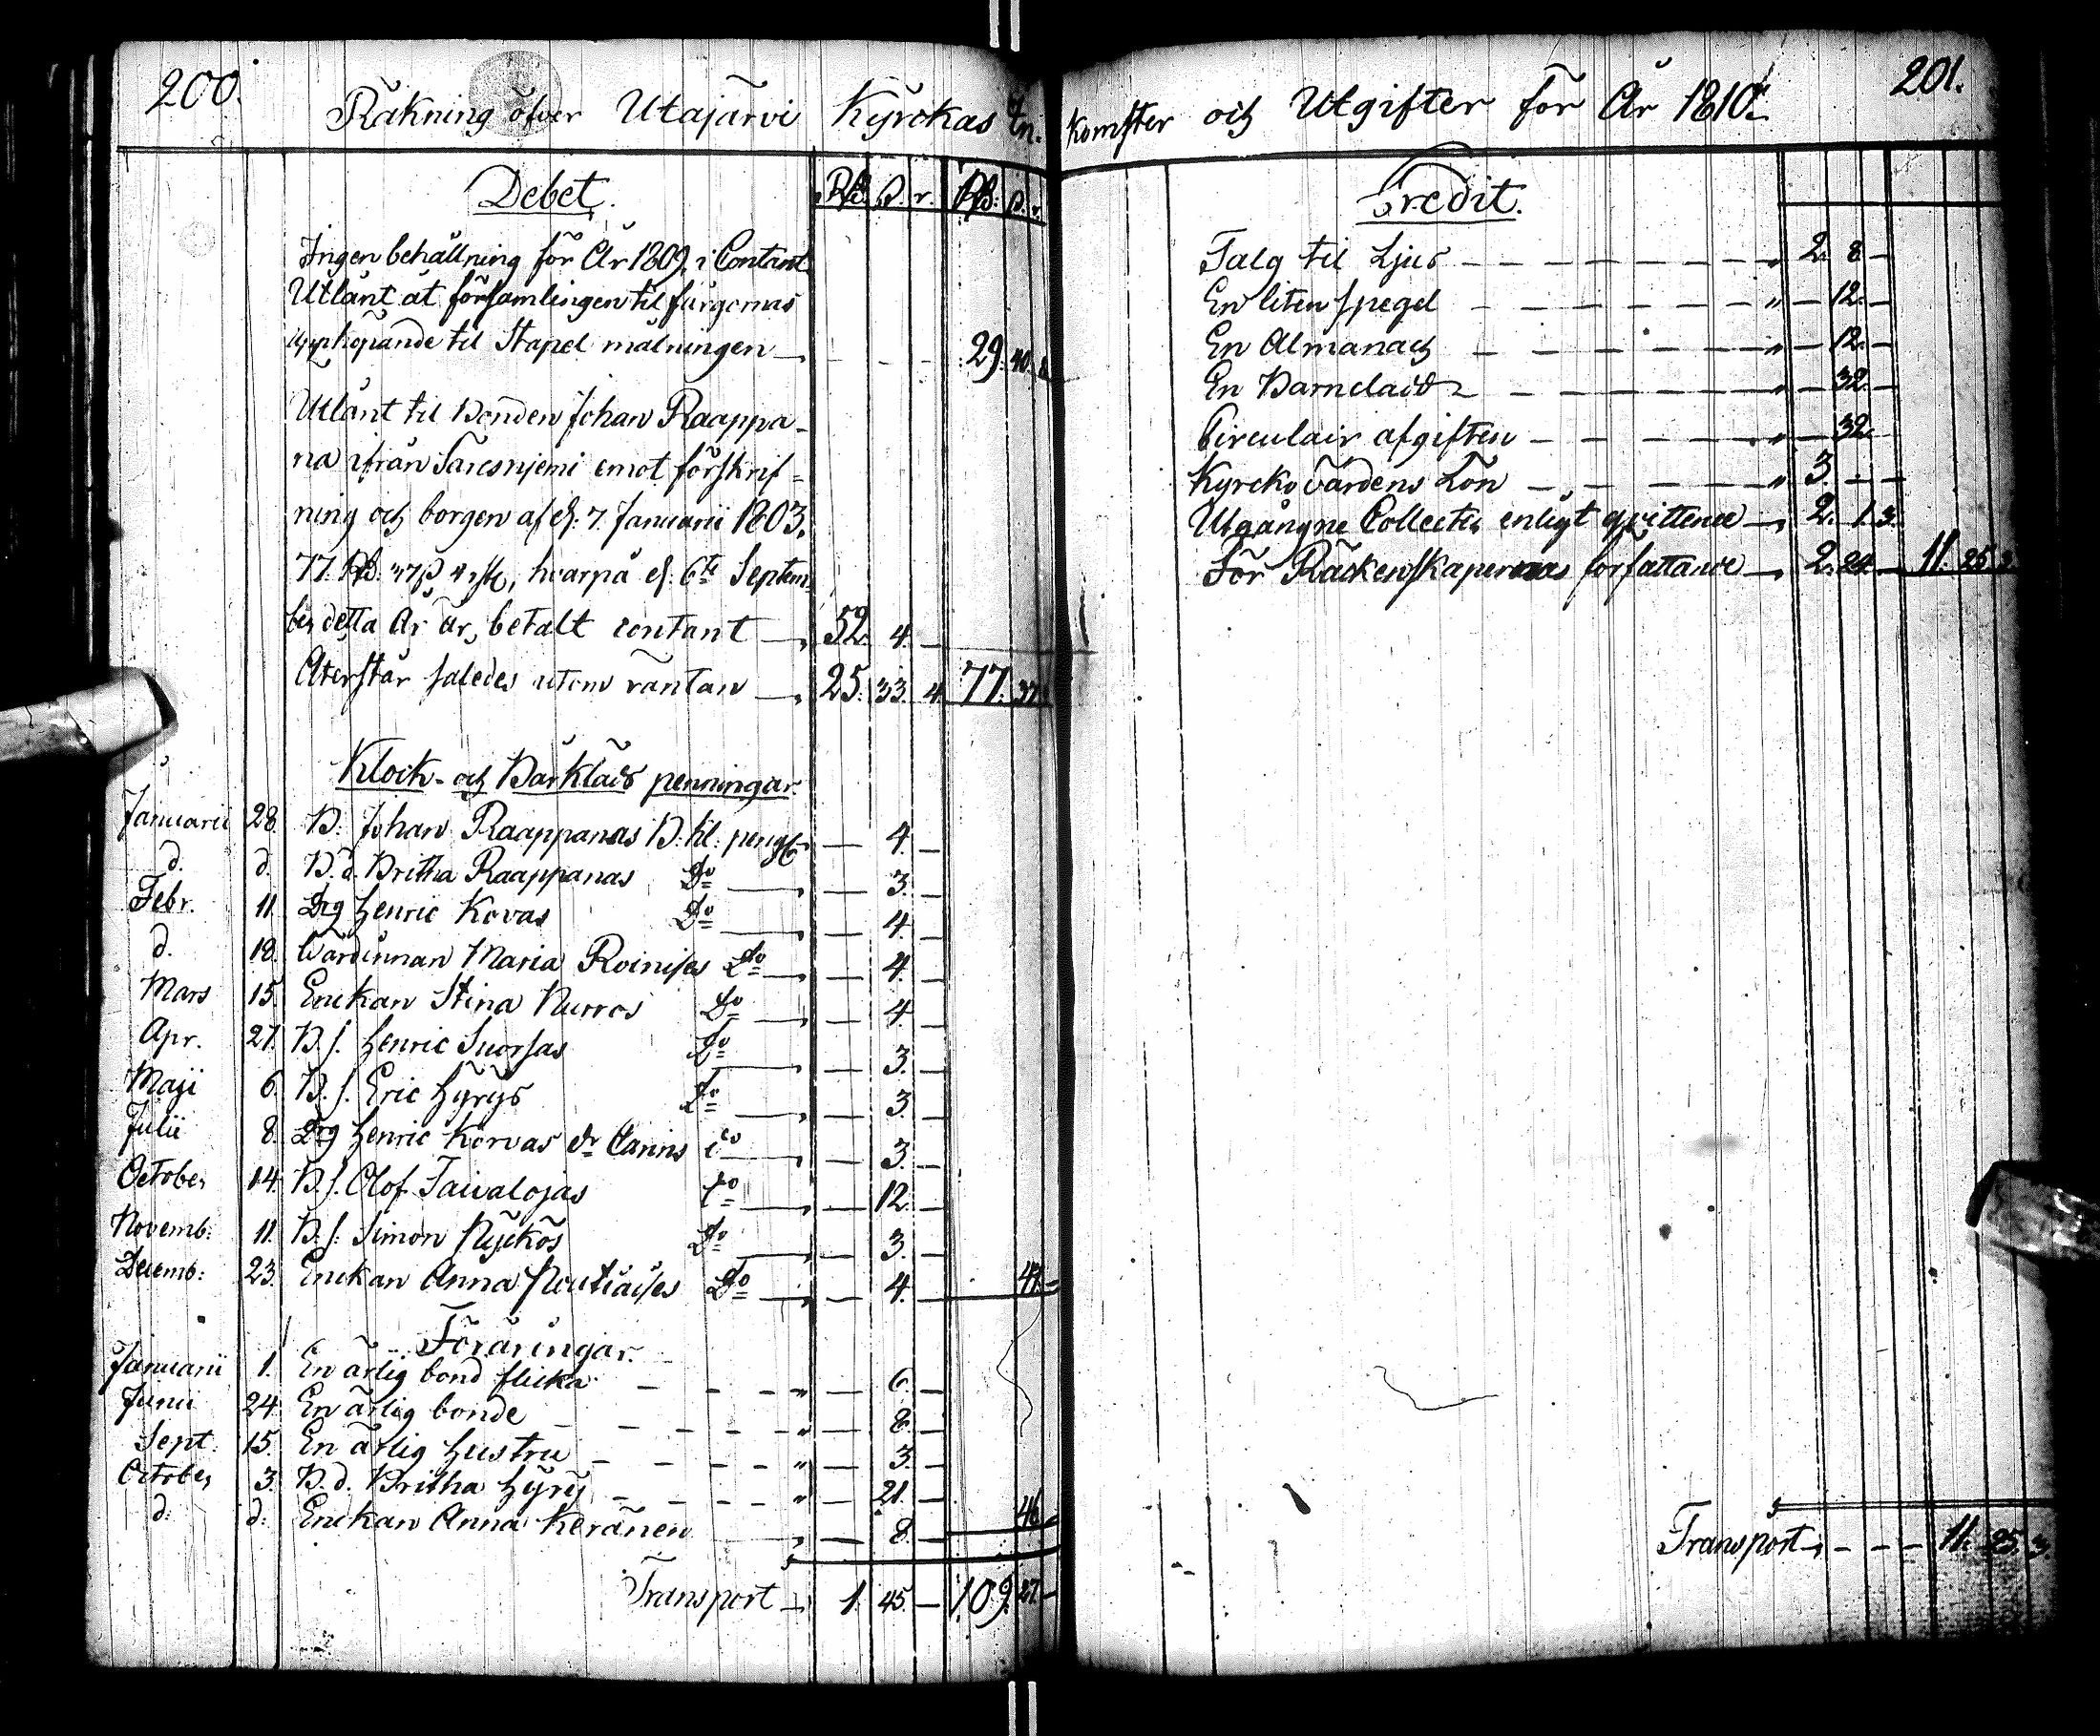 200.
Räkning öfver Utajärvi Kyrckas In-
Debet.
Rd. ß. r. Rd. ß. r.
Ingen behållning för År 1809, i Contant
Utlånt åt församlingen til färgornas
upphöpande til Stapel målningen — 29. 40.
Utlånt til Bonden Johan Raappa-
na ifrån Särcsnjemi emot förskrif=
ning och borgen af d. 7. Januarii 1803.
77. Rd. 37ß 4 rst, hvarpå d. 6te Septem
ber detta År är betalt contant — 52. 4. —
Återstår således utom räntan — 25. 33. 4. 77. 37.
Klock- och Bårkläds penningar.
Januarii 28. B. Johan Raappanas B. kl. peng — 4. —
d. d. B. d. Britha Raappanas Do — 3. —
Febr. 11. Drg Henric Kovas Do — 4. —
d. 18. Värdinnan Maria Roinises Do — 4. —
Mars 15. Enckan Stina Nurros Do — 4. —
Apr. 27. B. s. Henric Suorsas Do — 3. —
Maji 6. B. s. Eric Hyrys Do — 3. —
Julii 8. Drg Henric Korvas dr Carins do — 3. —
October 14. B. s. Olof Taivalojas Do — 12. —
Novemb: 11. B. s. Simon Nyckös Do — 3. —
Decemb: 23. Enckan Anna Do — 4. — 47. —
Föräringar.
Januarii 1. En ärlig bond flicka — 6. —
Junii 24. En ärlig bonde — 8. —
Sept. 15. En ärlig hustru — 3. —
October 3. B. d. Britha Hyry — 21. —
d: d: Enckan Anna Keränen — 8. — 46. —
Transport — 1. 45. — 109. 27. —
201.
komster och Utgifter för År 1810.
Credit.
Talg til Ljus — 2. 8. —
En liten spegel — 12. —
En Almanach — 12. —
En Barnclädd — 32. —
Circulair afgiften — 32. —
Kyrckovärdens Lön — 3. — —
Utgångne Collecter enligt qvittence — 2. 1. 3.
För Räckenskapernas författande — 2. 24. — 11. 25. 3.
Transport — 11. 25. 3.